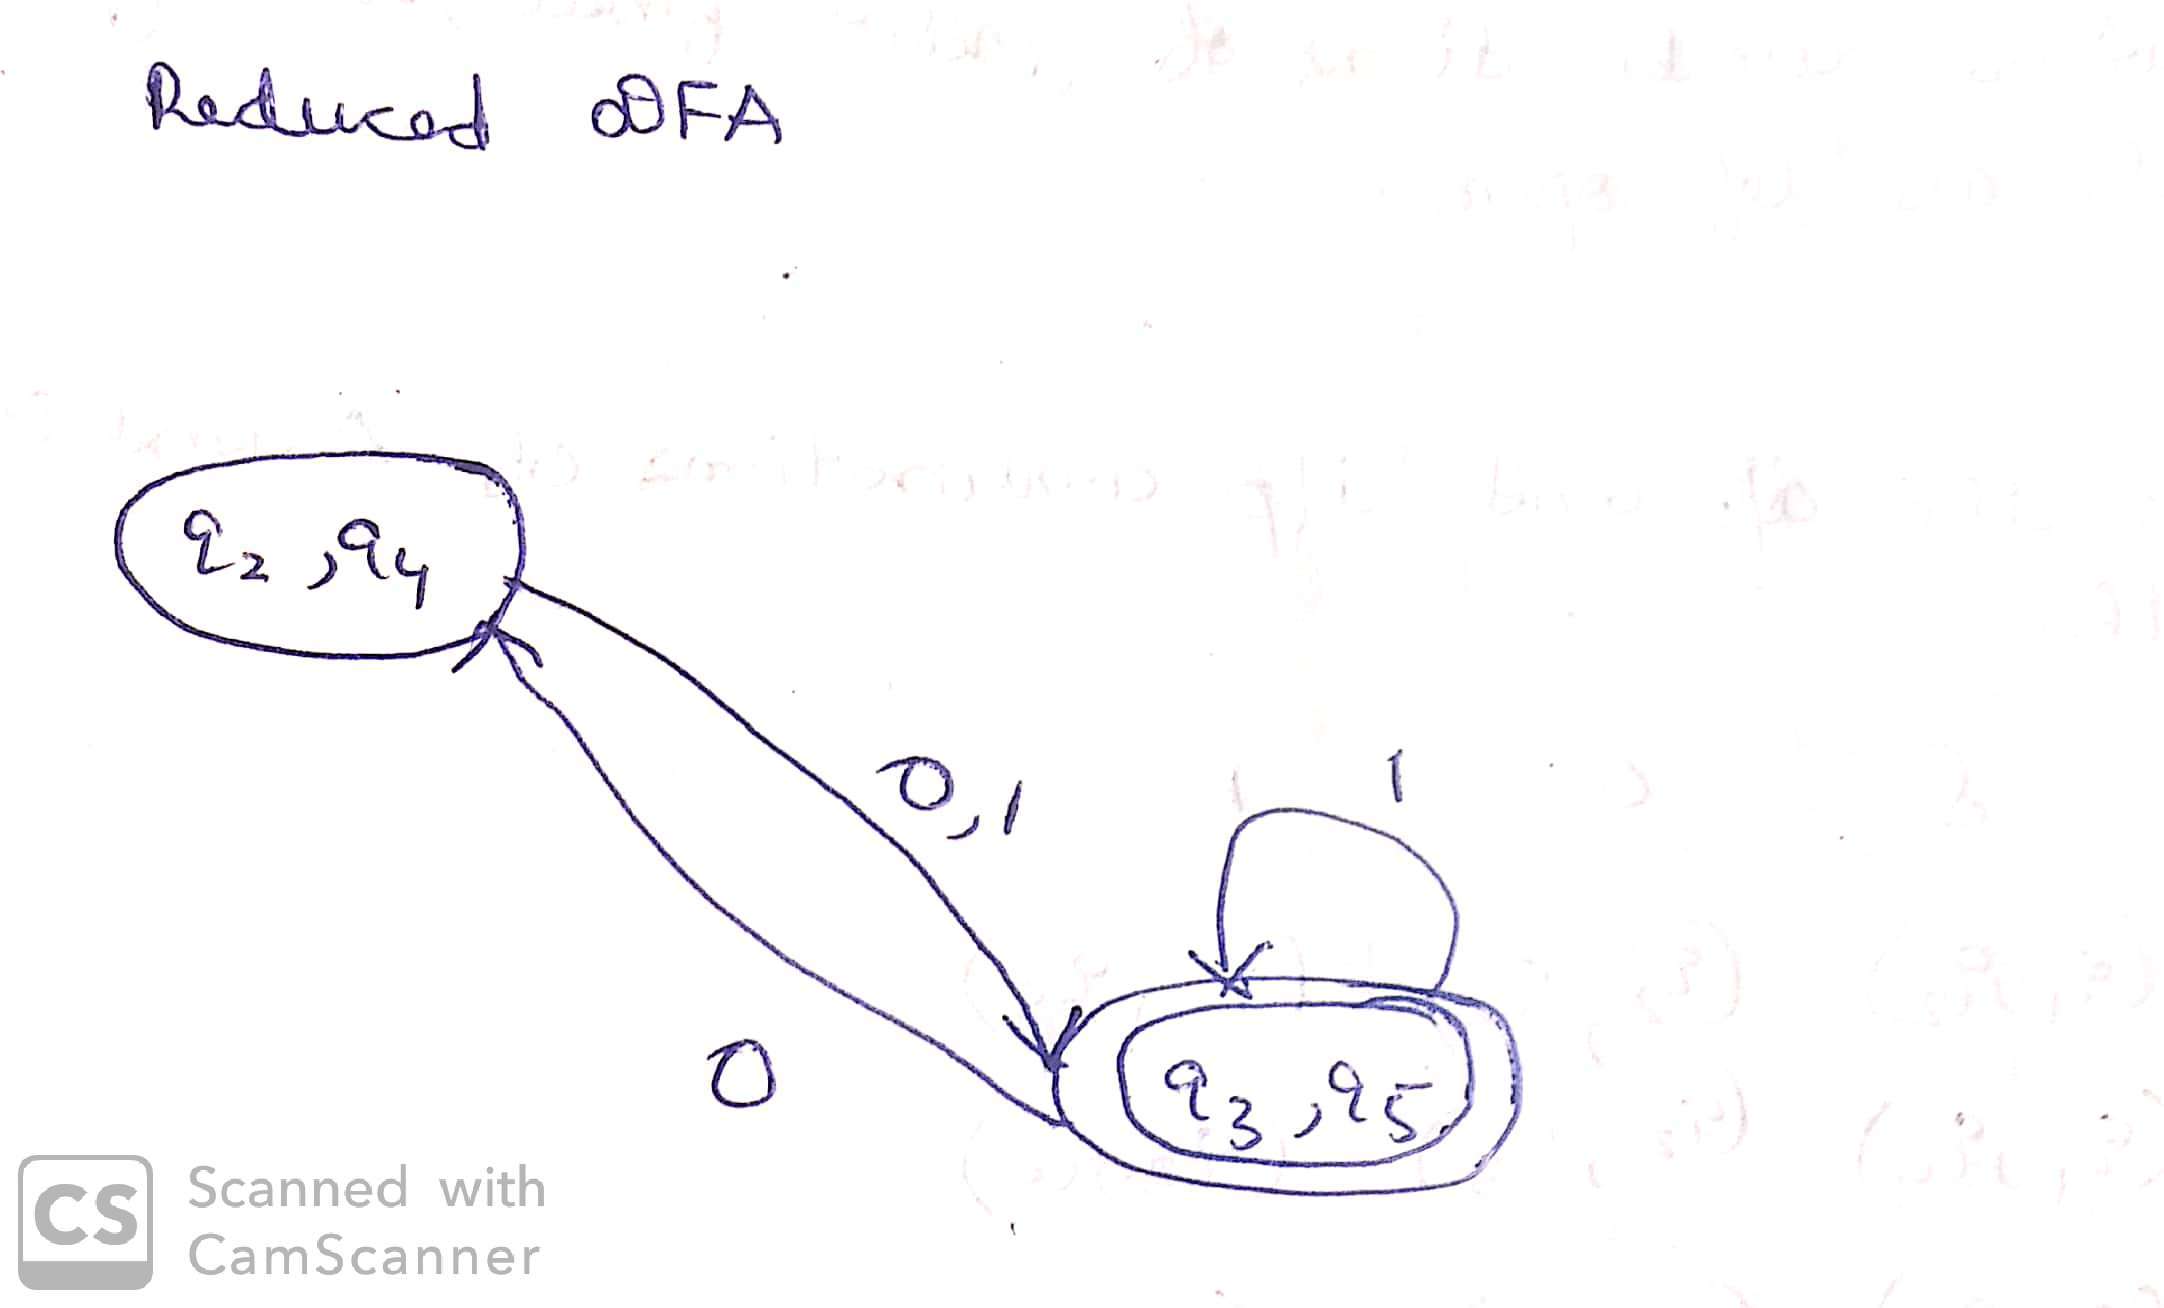 Reduced DFA
q2, q4
0,1
1
q3, q5
0
CS Scanned with
CamScanner